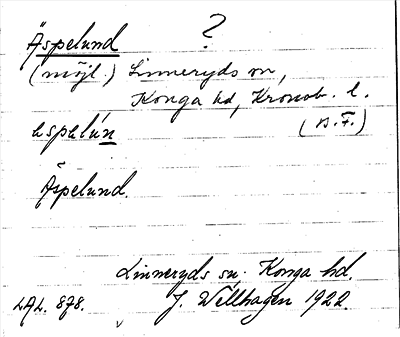 Äspelund ?
(möjl.) Linneryds sn,
Konga hd, Kronob. l.
espelún (B.F.)
Äspelund.
Linneryds sn. Konga hd.
LAL. 878. J. Wellhagen 1922.